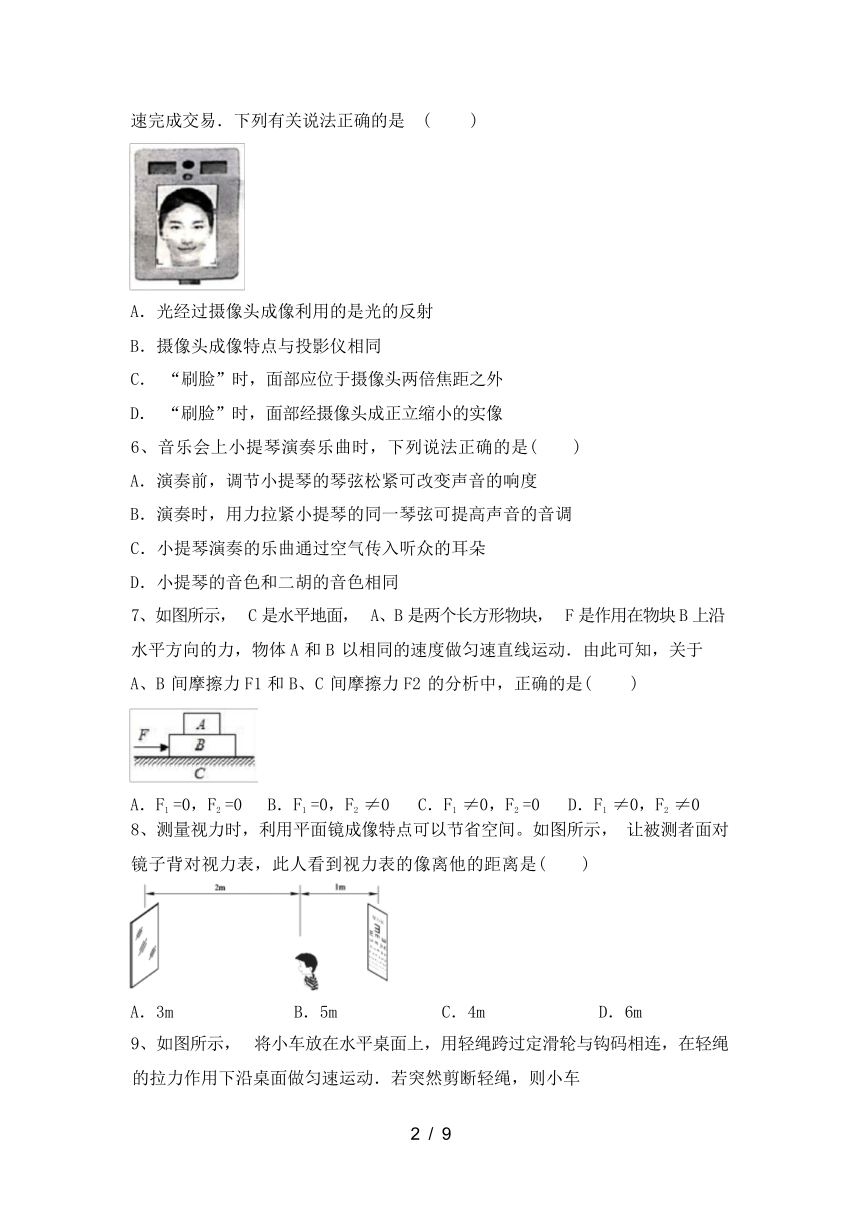 速完成交易．下列有关说法正确的是 (　　)
A．光经过摄像头成像利用的是光的反射
B．摄像头成像特点与投影仪相同
C． “刷脸”时，面部应位于摄像头两倍焦距之外
D． “刷脸”时，面部经摄像头成正立缩小的实像
6、音乐会上小提琴演奏乐曲时，下列说法正确的是(　　)
A．演奏前，调节小提琴的琴弦松紧可改变声音的响度
B．演奏时，用力拉紧小提琴的同一琴弦可提高声音的音调
C．小提琴演奏的乐曲通过空气传入听众的耳朵
D．小提琴的音色和二胡的音色相同
7、如图所示， C 是水平地面， A、B 是两个长方形物块， F 是作用在物块 B 上沿
水平方向的力，物体 A 和 B 以相同的速度做匀速直线运动．由此可知，关于
A、B 间摩擦力 F1 和 B、C 间摩擦力 F2 的分析中，正确的是(　　)
F A B C
A．F₁ =0，F₂ =0 B．F₁ =0，F₂ ≠0 C．F₁ ≠0，F₂ =0 D．F₁ ≠0，F₂ ≠0
8、测量视力时，利用平面镜成像特点可以节省空间。如图所示， 让被测者面对
镜子背对视力表，此人看到视力表的像离他的距离是(　　)
2m 1m
A．3m B．5m C．4m D．6m
9、如图所示， 将小车放在水平桌面上，用轻绳跨过定滑轮与钩码相连，在轻绳
的拉力作用下沿桌面做匀速运动．若突然剪断轻绳，则小车
2 / 9